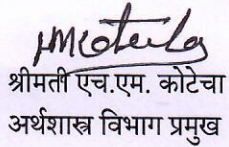 HMKotecha
श्रीमती एच.एम. कोटेचा
अर्थशास्त्र विभाग प्रमुख